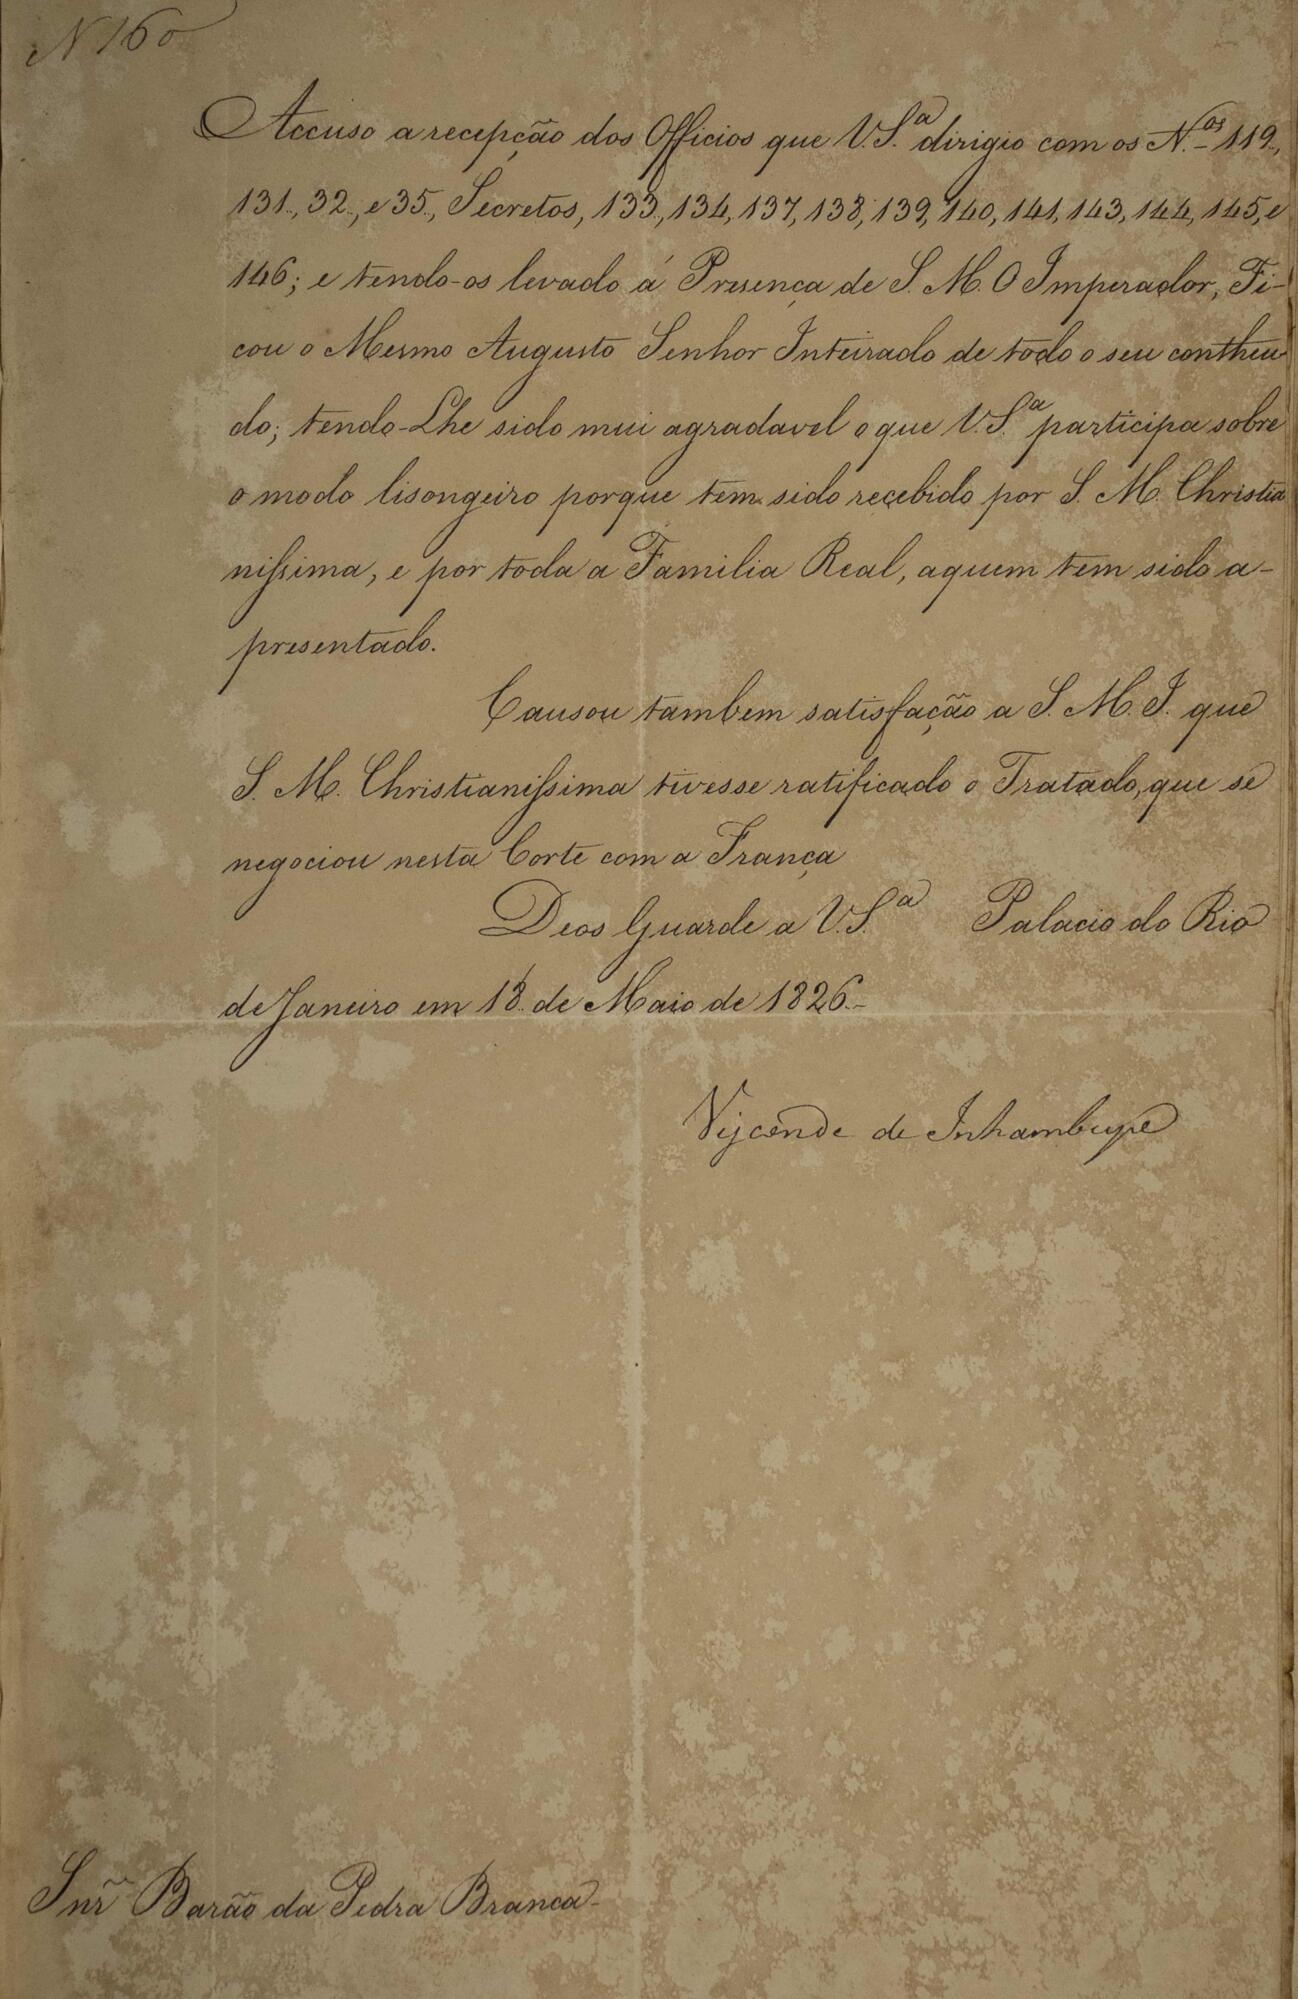 N 160
Accuso a recepção dos Officios que V. S.ª dirigio com os N.os 119,
131., 32., e 35., Secretos, 133., 134, 137, 138, 139, 140, 141, 143, 144, 145, e
146; e tendo-os levado á Presença de S. M. O Imperador, Fi-
cou o Mesmo Augusto Senhor Inteirado de todo o seu contheu
do; tendo-Lhe sido mui agradavel o que V. S.ª participa sobre
o modo lisongeiro porque tem sido recebido por S. M. Christia
nissima, e por toda a Familia Real, aquem tem sido a-
presentado.
Causou tambem satisfação a S. M. I. que
S. M. Christianissima tivesse ratificado o Tratado, que se
negociou nesta Corte com a França
Deos Guarde a V. S.ª Palacio do Rio
de Janeiro em 18 de Maio de 1826.-
Visconde de Inhambupe
Snr Barão da Pedra Branca-